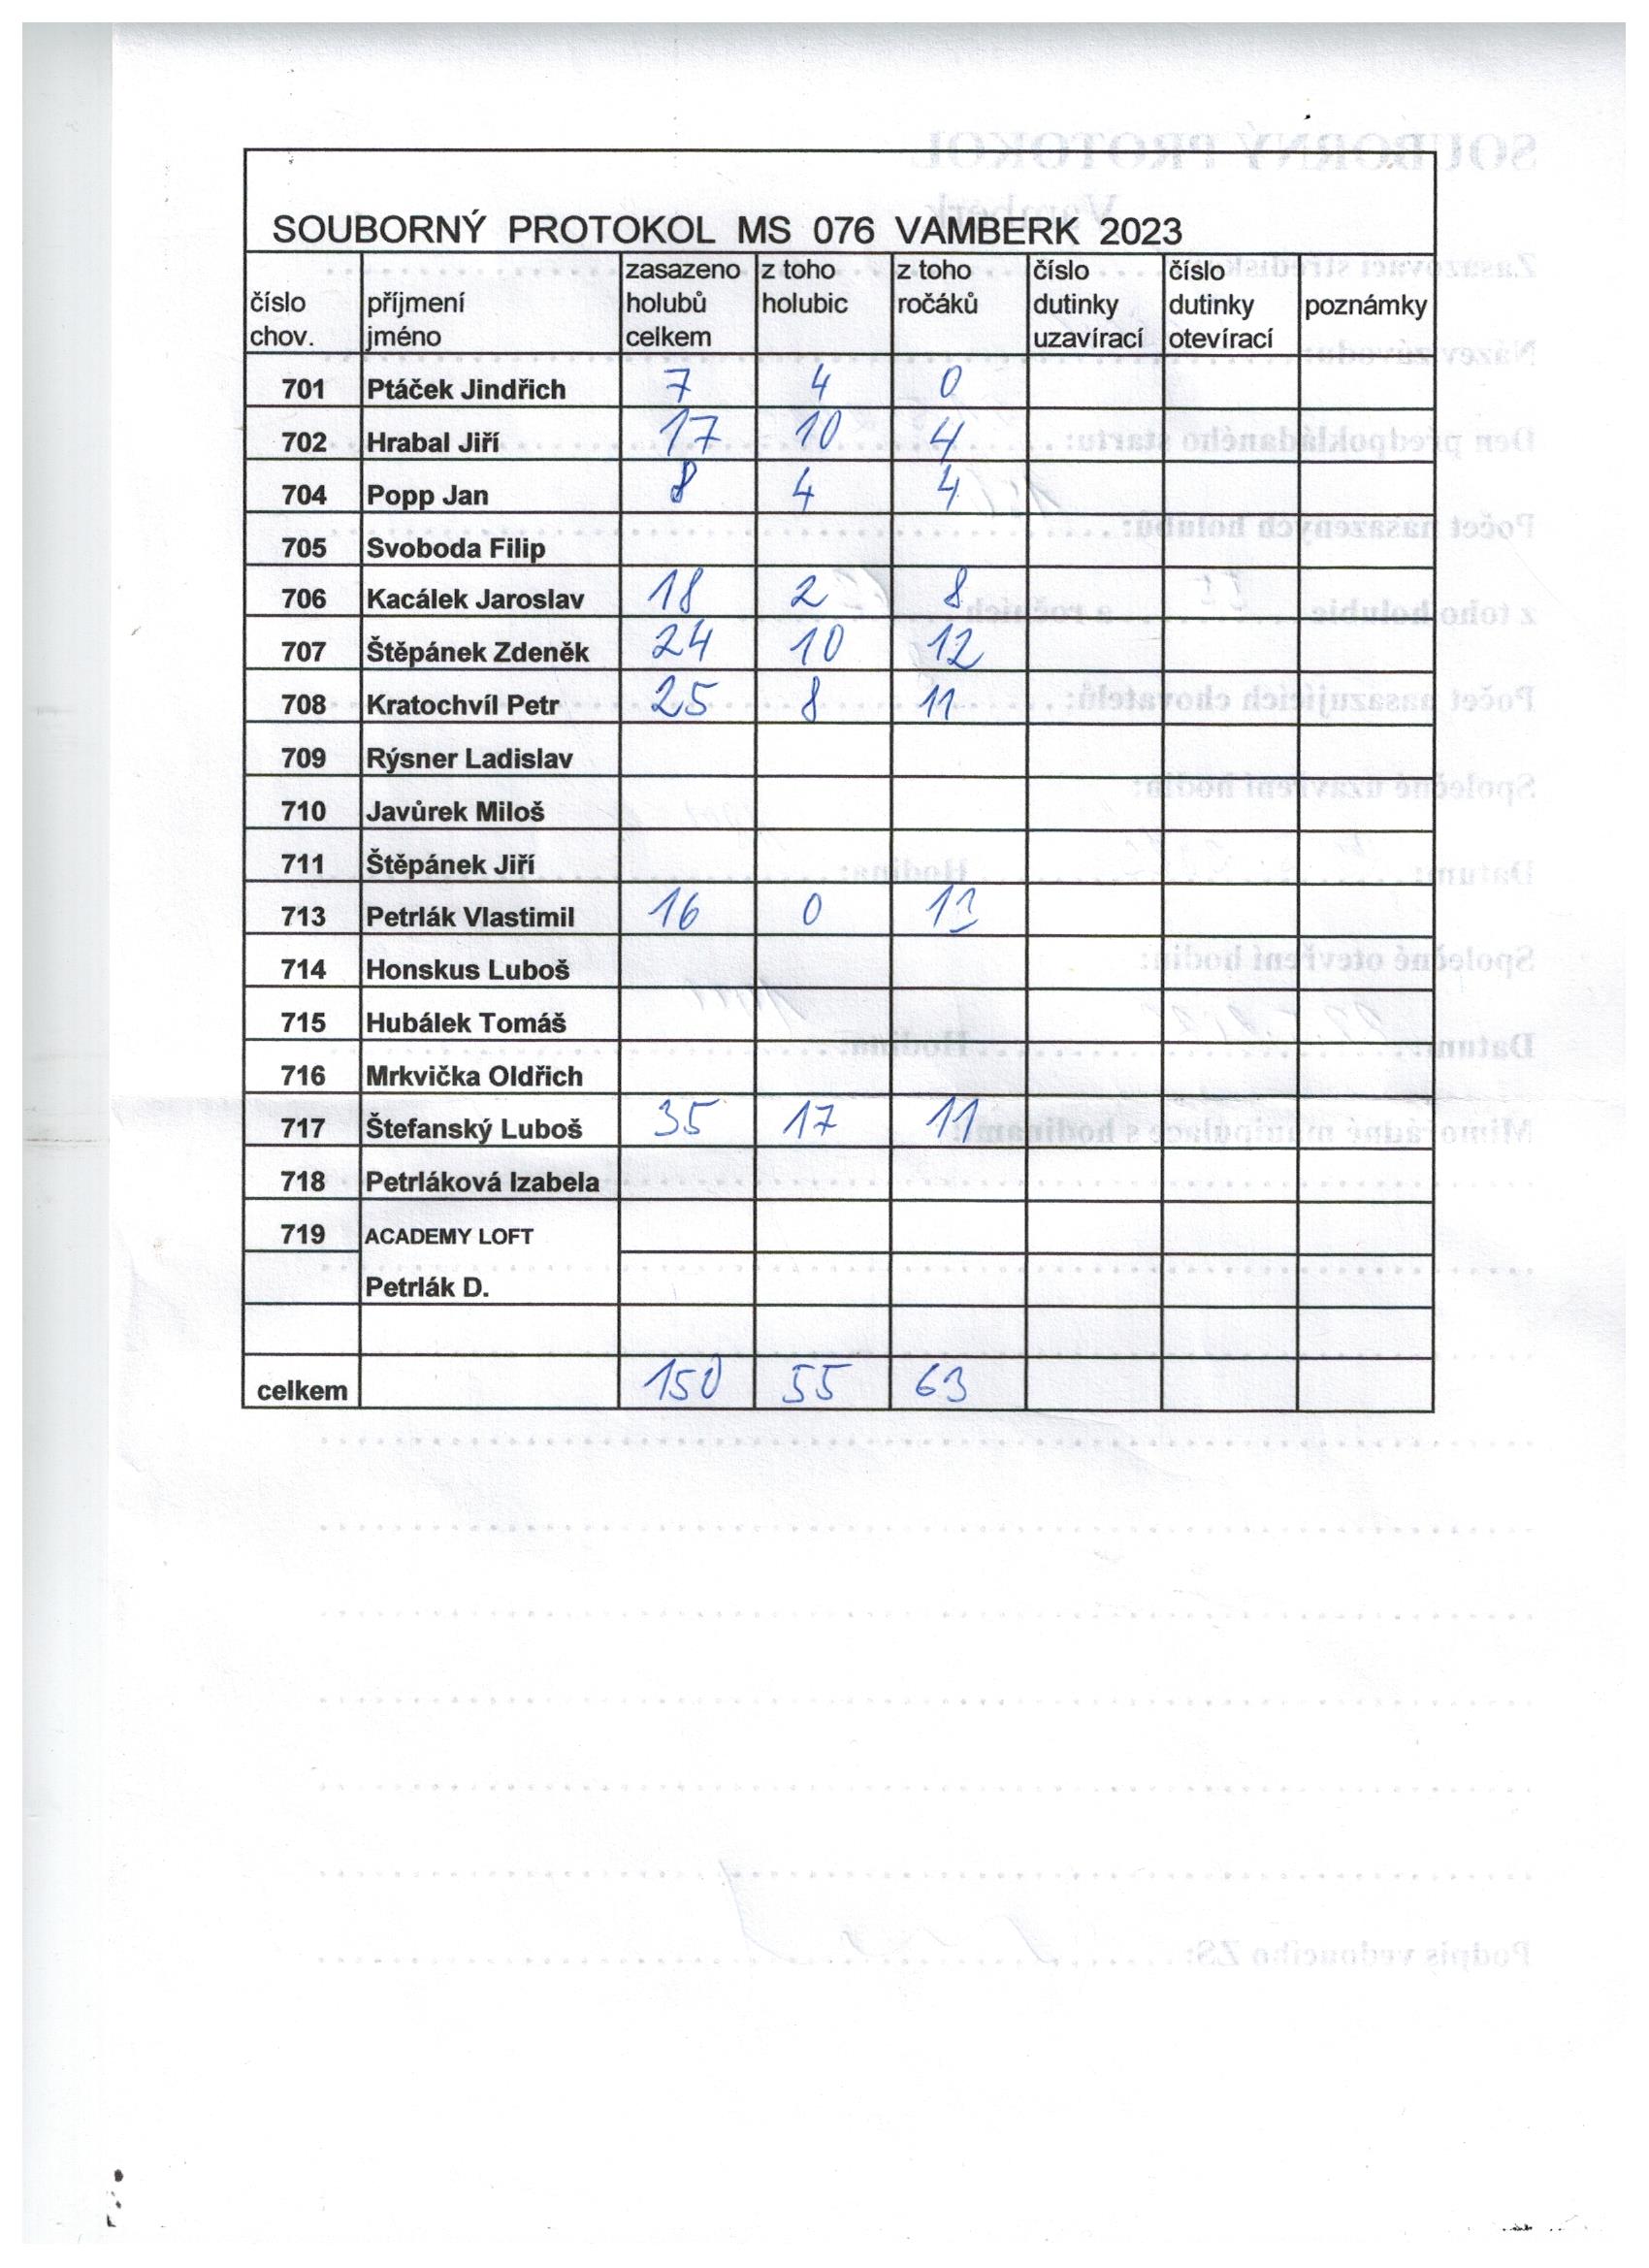 SOUBORNÝ PROTOKOL MS 076 VAMBERK 2023
číslo chov. příjmení jméno zasazeno holubů celkem z toho holubic z toho ročáků číslo dutinky uzavírací číslo dutinky otevírací poznámky
701 Ptáček Jindřich 7 4 0
702 Hrabal Jiří 17 10 4
704 Popp Jan 8 4 4
705 Svoboda Filip
706 Kacálek Jaroslav 18 2 8
707 Štěpánek Zdeněk 24 10 12
708 Kratochvíl Petr 25 8 11
709 Rýsner Ladislav
710 Javůrek Miloš
711 Štěpánek Jiří
713 Petrlák Vlastimil 16 0 13
714 Honskus Luboš
715 Hubálek Tomáš
716 Mrkvička Oldřich
717 Štefanský Luboš 35 17 11
718 Petrláková Izabela
719 ACADEMY LOFT
Petrlák D.
celkem 150 55 63